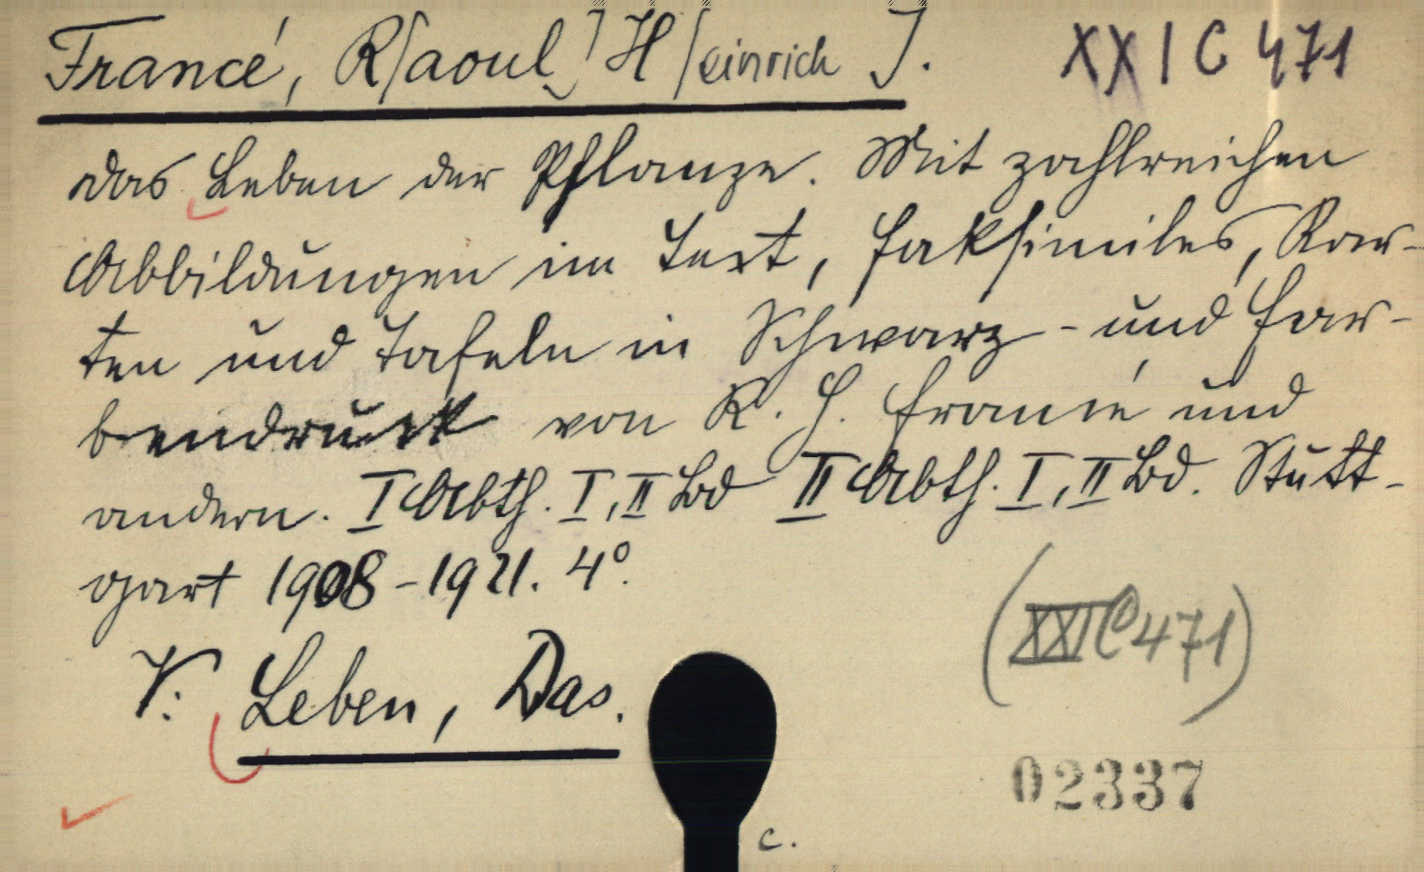 Francé, R[aoul] H[einrich]. XXI C 471
Das Leben der Pflanze. Mit zahlreichen
Abbildungen im Text, Faksimiles, Kar-
ten und Tafeln in Schwarz- und Far-
bendruck von R. H. Francé und
andern. I Abth. I, II Bd II Abth. I, II Bd. Stutt-
gart 1908-1921. 4°.
(XXI C 471)
V: Leben, Das.
02337
c.